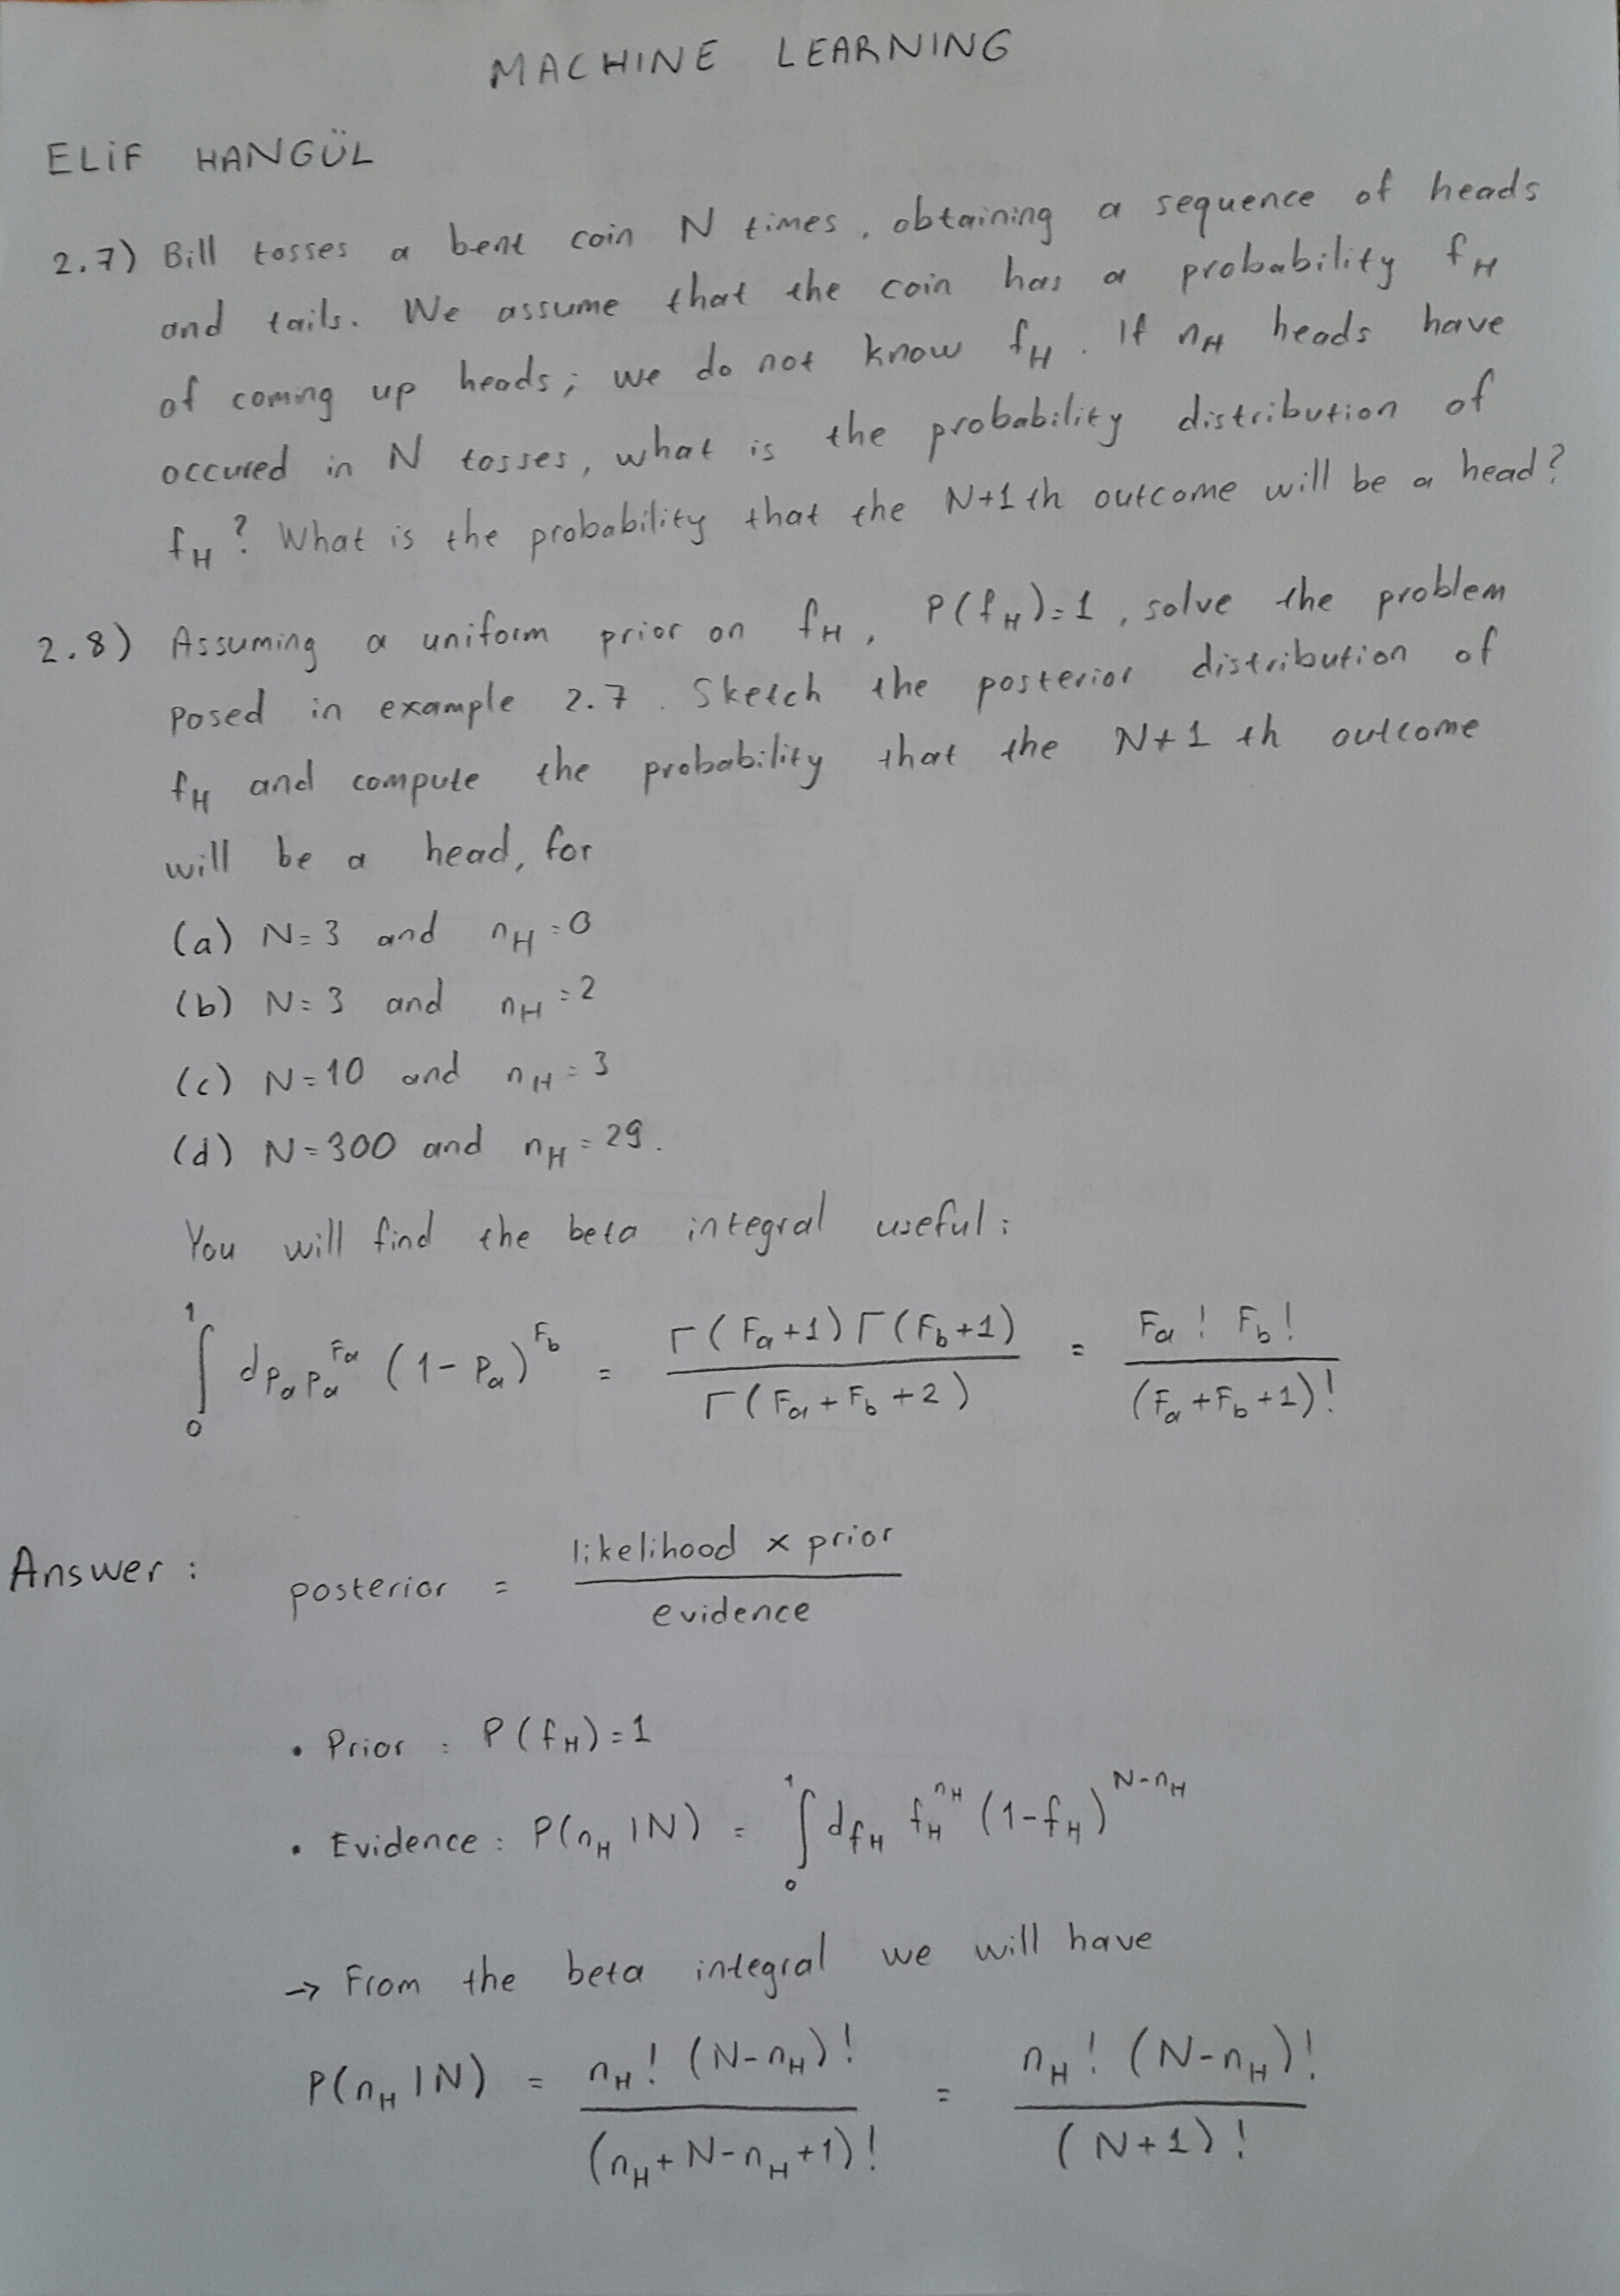 MACHINE LEARNING
ELİF HANGÜL
2.7) Bill tosses a bent coin N times, obtaining a sequence of heads
and tails. We assume that the coin has a probability f_H
of coming up heads; we do not know f_H. If n_H heads have
occured in N tosses, what is the probability distribution of
f_H? What is the probability that the N+1 th outcome will be a head?
2.8) Assuming a uniform prior on f_H, P(f_H)=1, solve the problem
posed in example 2.7. Sketch the posterior distribution of
f_H and compute the probability that the N+1 th outcome
will be a head, for
(a) N=3 and n_H=0
(b) N=3 and n_H=2
(c) N=10 and n_H=3
(d) N=300 and n_H=29.
You will find the beta integral useful:
∫_0^1 dp_a p_a^{F_a} (1-p_a)^{F_b} = Γ(F_a+1)Γ(F_b+1) / Γ(F_a+F_b+2) = F_a! F_b! / (F_a+F_b+1)!
Answer: posterior = likelihood x prior / evidence
• Prior: P(f_H)=1
• Evidence: P(n_H|N) = ∫_0^1 df_H f_H^{n_H} (1-f_H)^{N-n_H}
→ From the beta integral we will have
P(n_H|N) = n_H! (N-n_H)! / (n_H+N-n_H+1)! = n_H! (N-n_H)! / (N+1)!